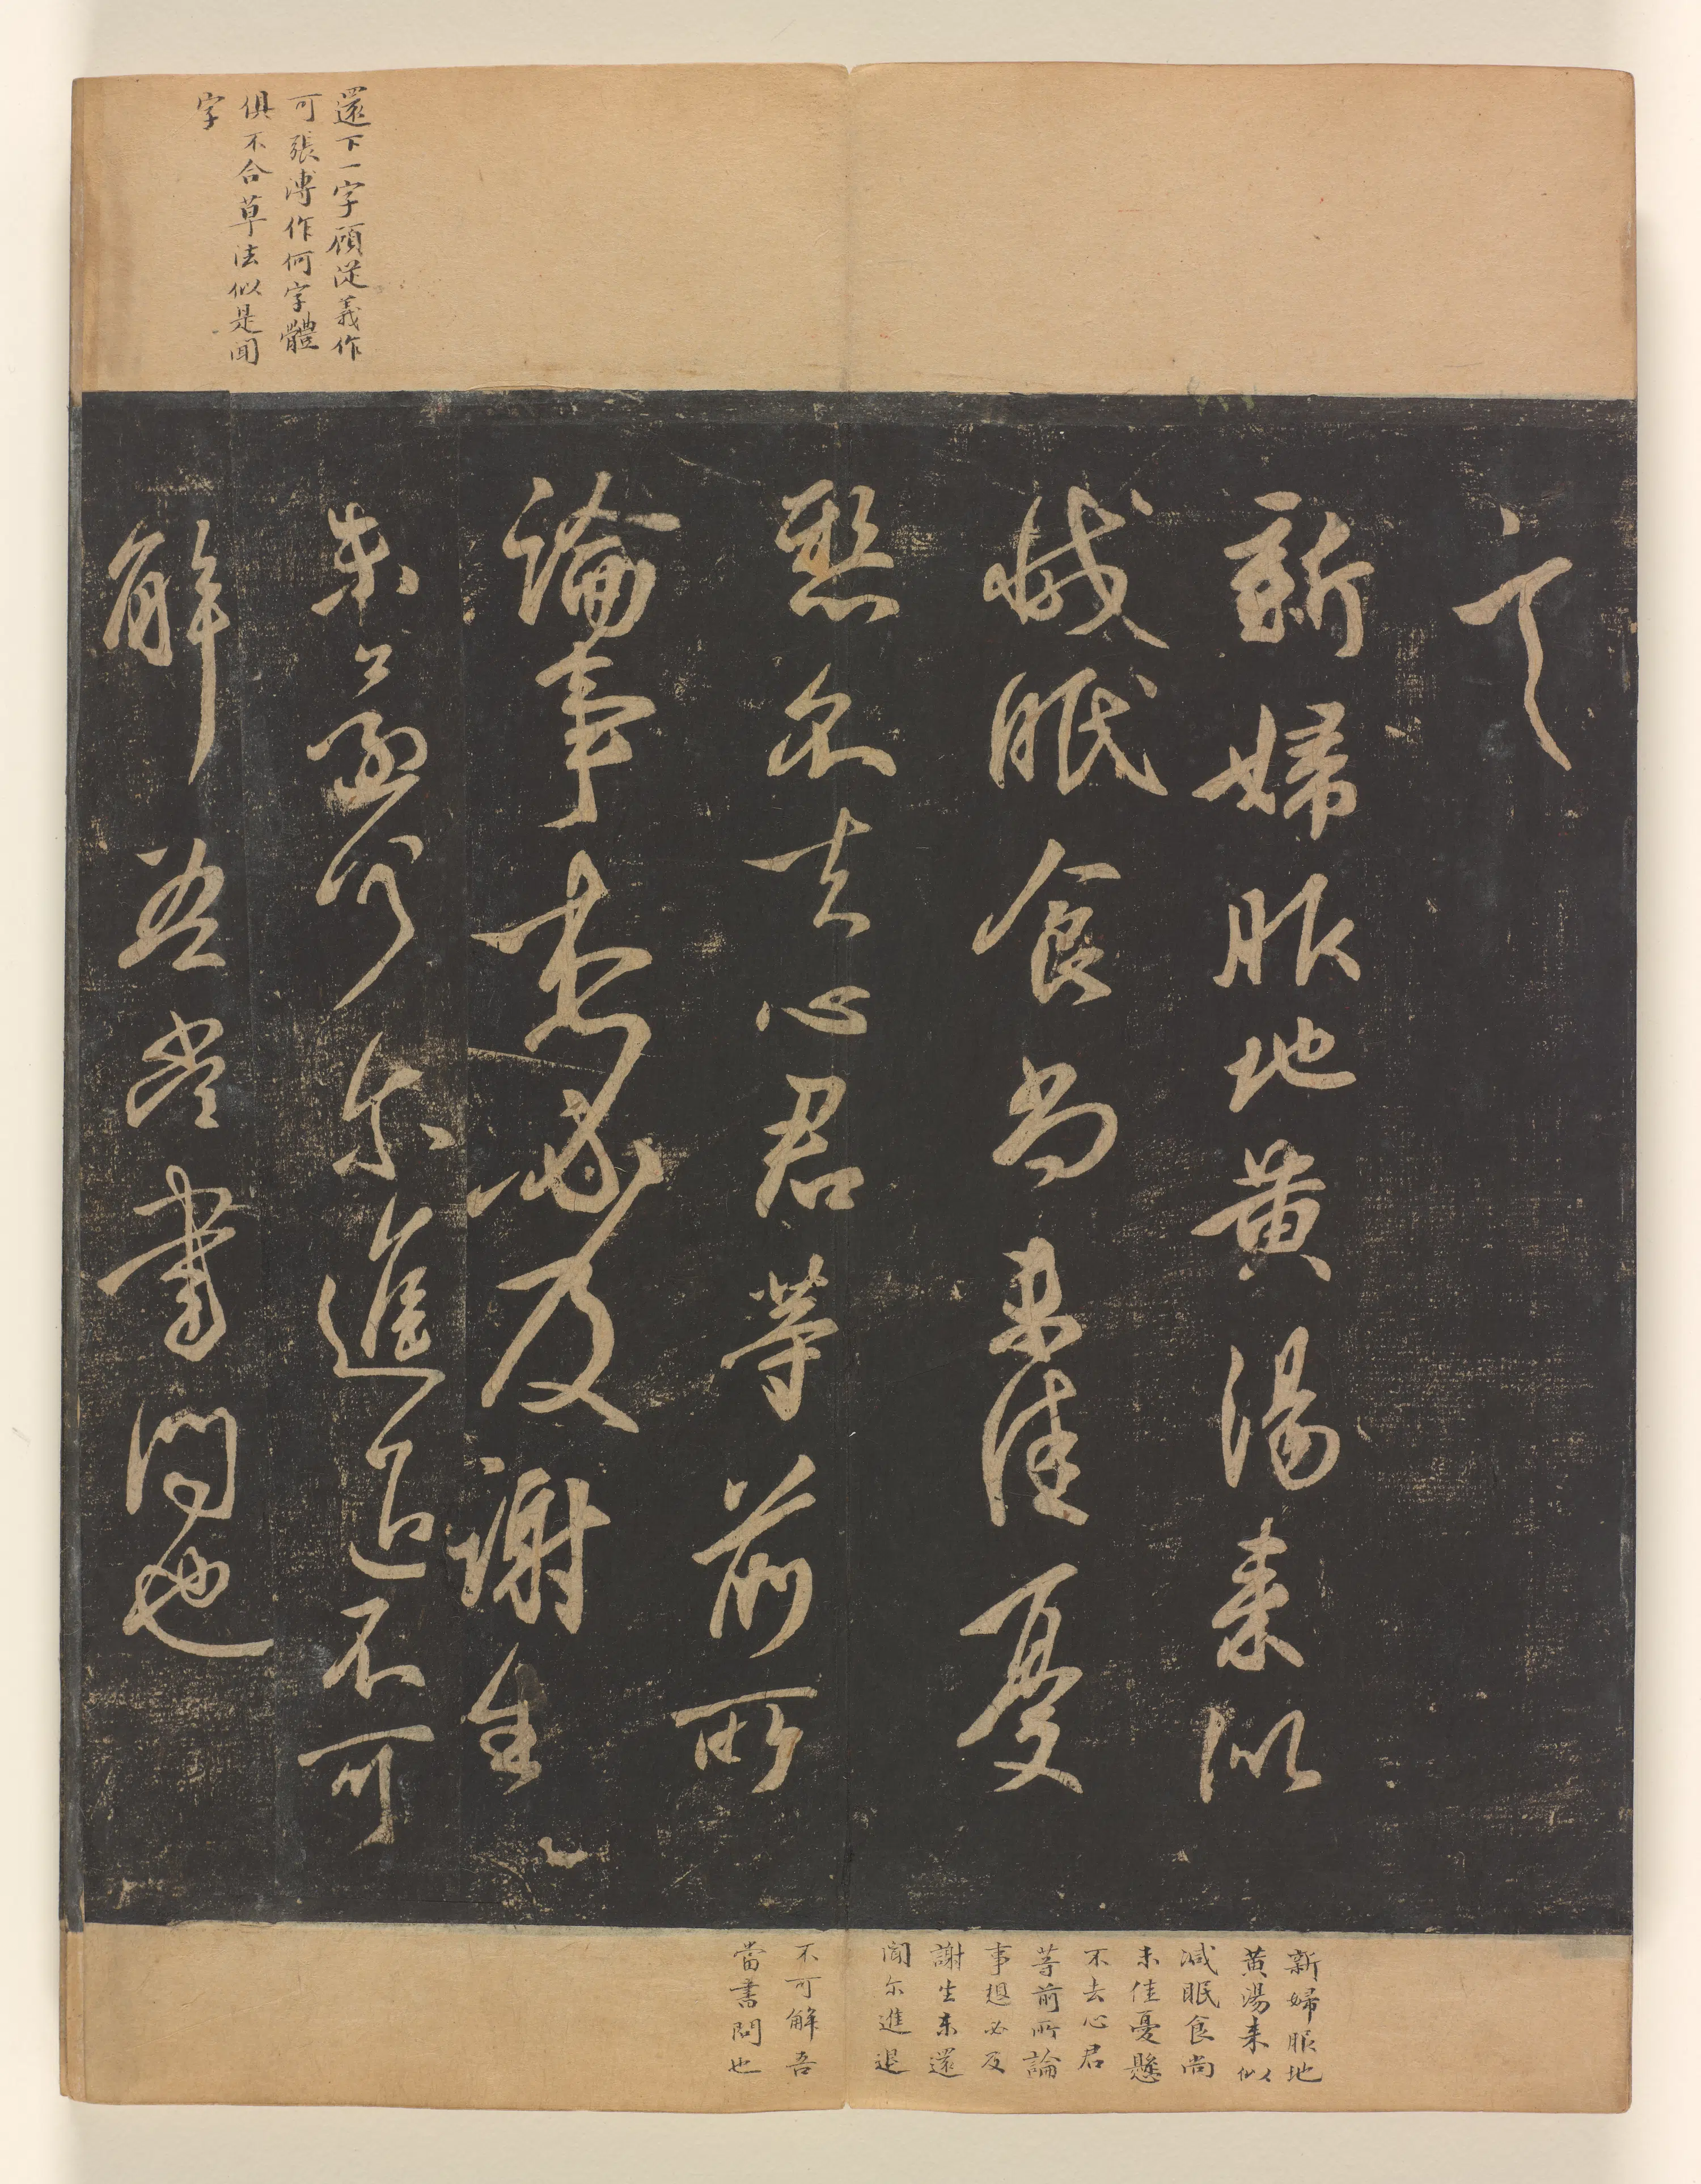 還下一字顧從義作
可張溥作何字體
俱不合草法似是聞
字
新婦服地黄湯来似
減眠食尚未佳憂
懸不去心君等前所
論事想必及謝生
未還尔進退不可
解吾當書問也
新婦服地
黄湯来似
減眠食尚
未佳憂懸
不去心君
等前所論
事想必及
謝生未還
聞尔進退
不可解吾
當書問也